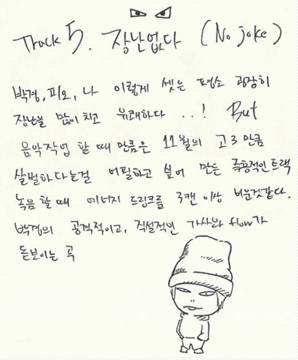 Track 5. 장난없다 (No joke)
박경, 피오, 나 이렇게 셋은 평소 굉장히
장난을 많이 치고 유쾌하다 ..! But
음악작업 할 때 만큼은 11월의 고3 만큼
살벌하다는걸 어필하고 싶어 만든 즉흥적인 트랙
녹음 할 때 에너지 드링크를 3캔 이상 비운것같다.
박경의 공격적이고, 직설적인 가사와 flow가
돋보이는 곡